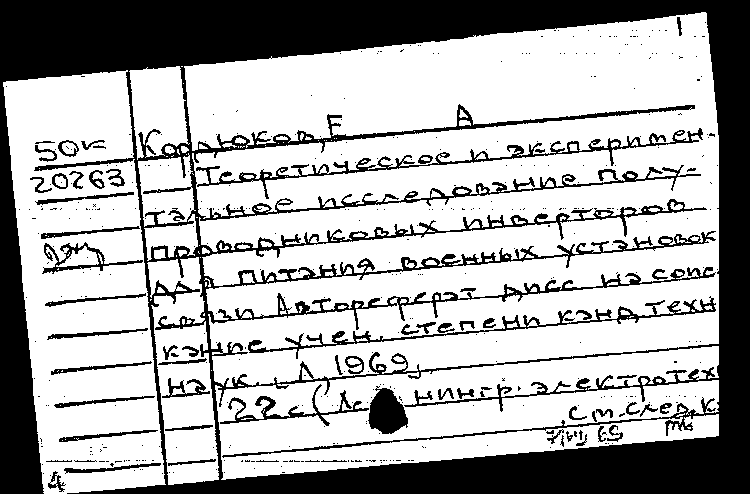 50к Кордюков, Е А
20263 Теоретическое и эксперимен-
тальное исследование полу-
проводниковых инверторов
для питания военных установок
связи. Автореферат дисс на соис
кание учен. степени канд техн
наук. Л, 1969,
22с (Ле нингр. электротех
см. след. к
4